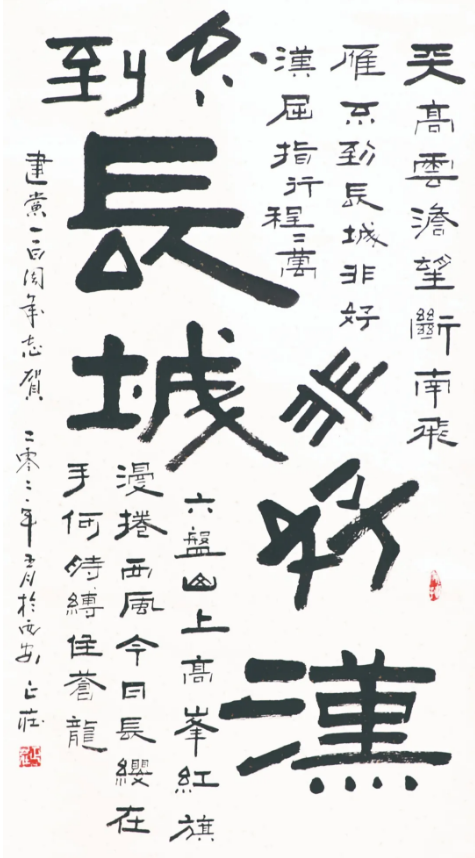 天高雲澹望斷南飛
雁不到長城非好
漢屈指行程二萬
不到長城非好漢
六盤山上高峯紅旗
漫捲西風今日長纓在
手何時縛住蒼龍
建黨一百周年志賀 二零二一年五月於西安